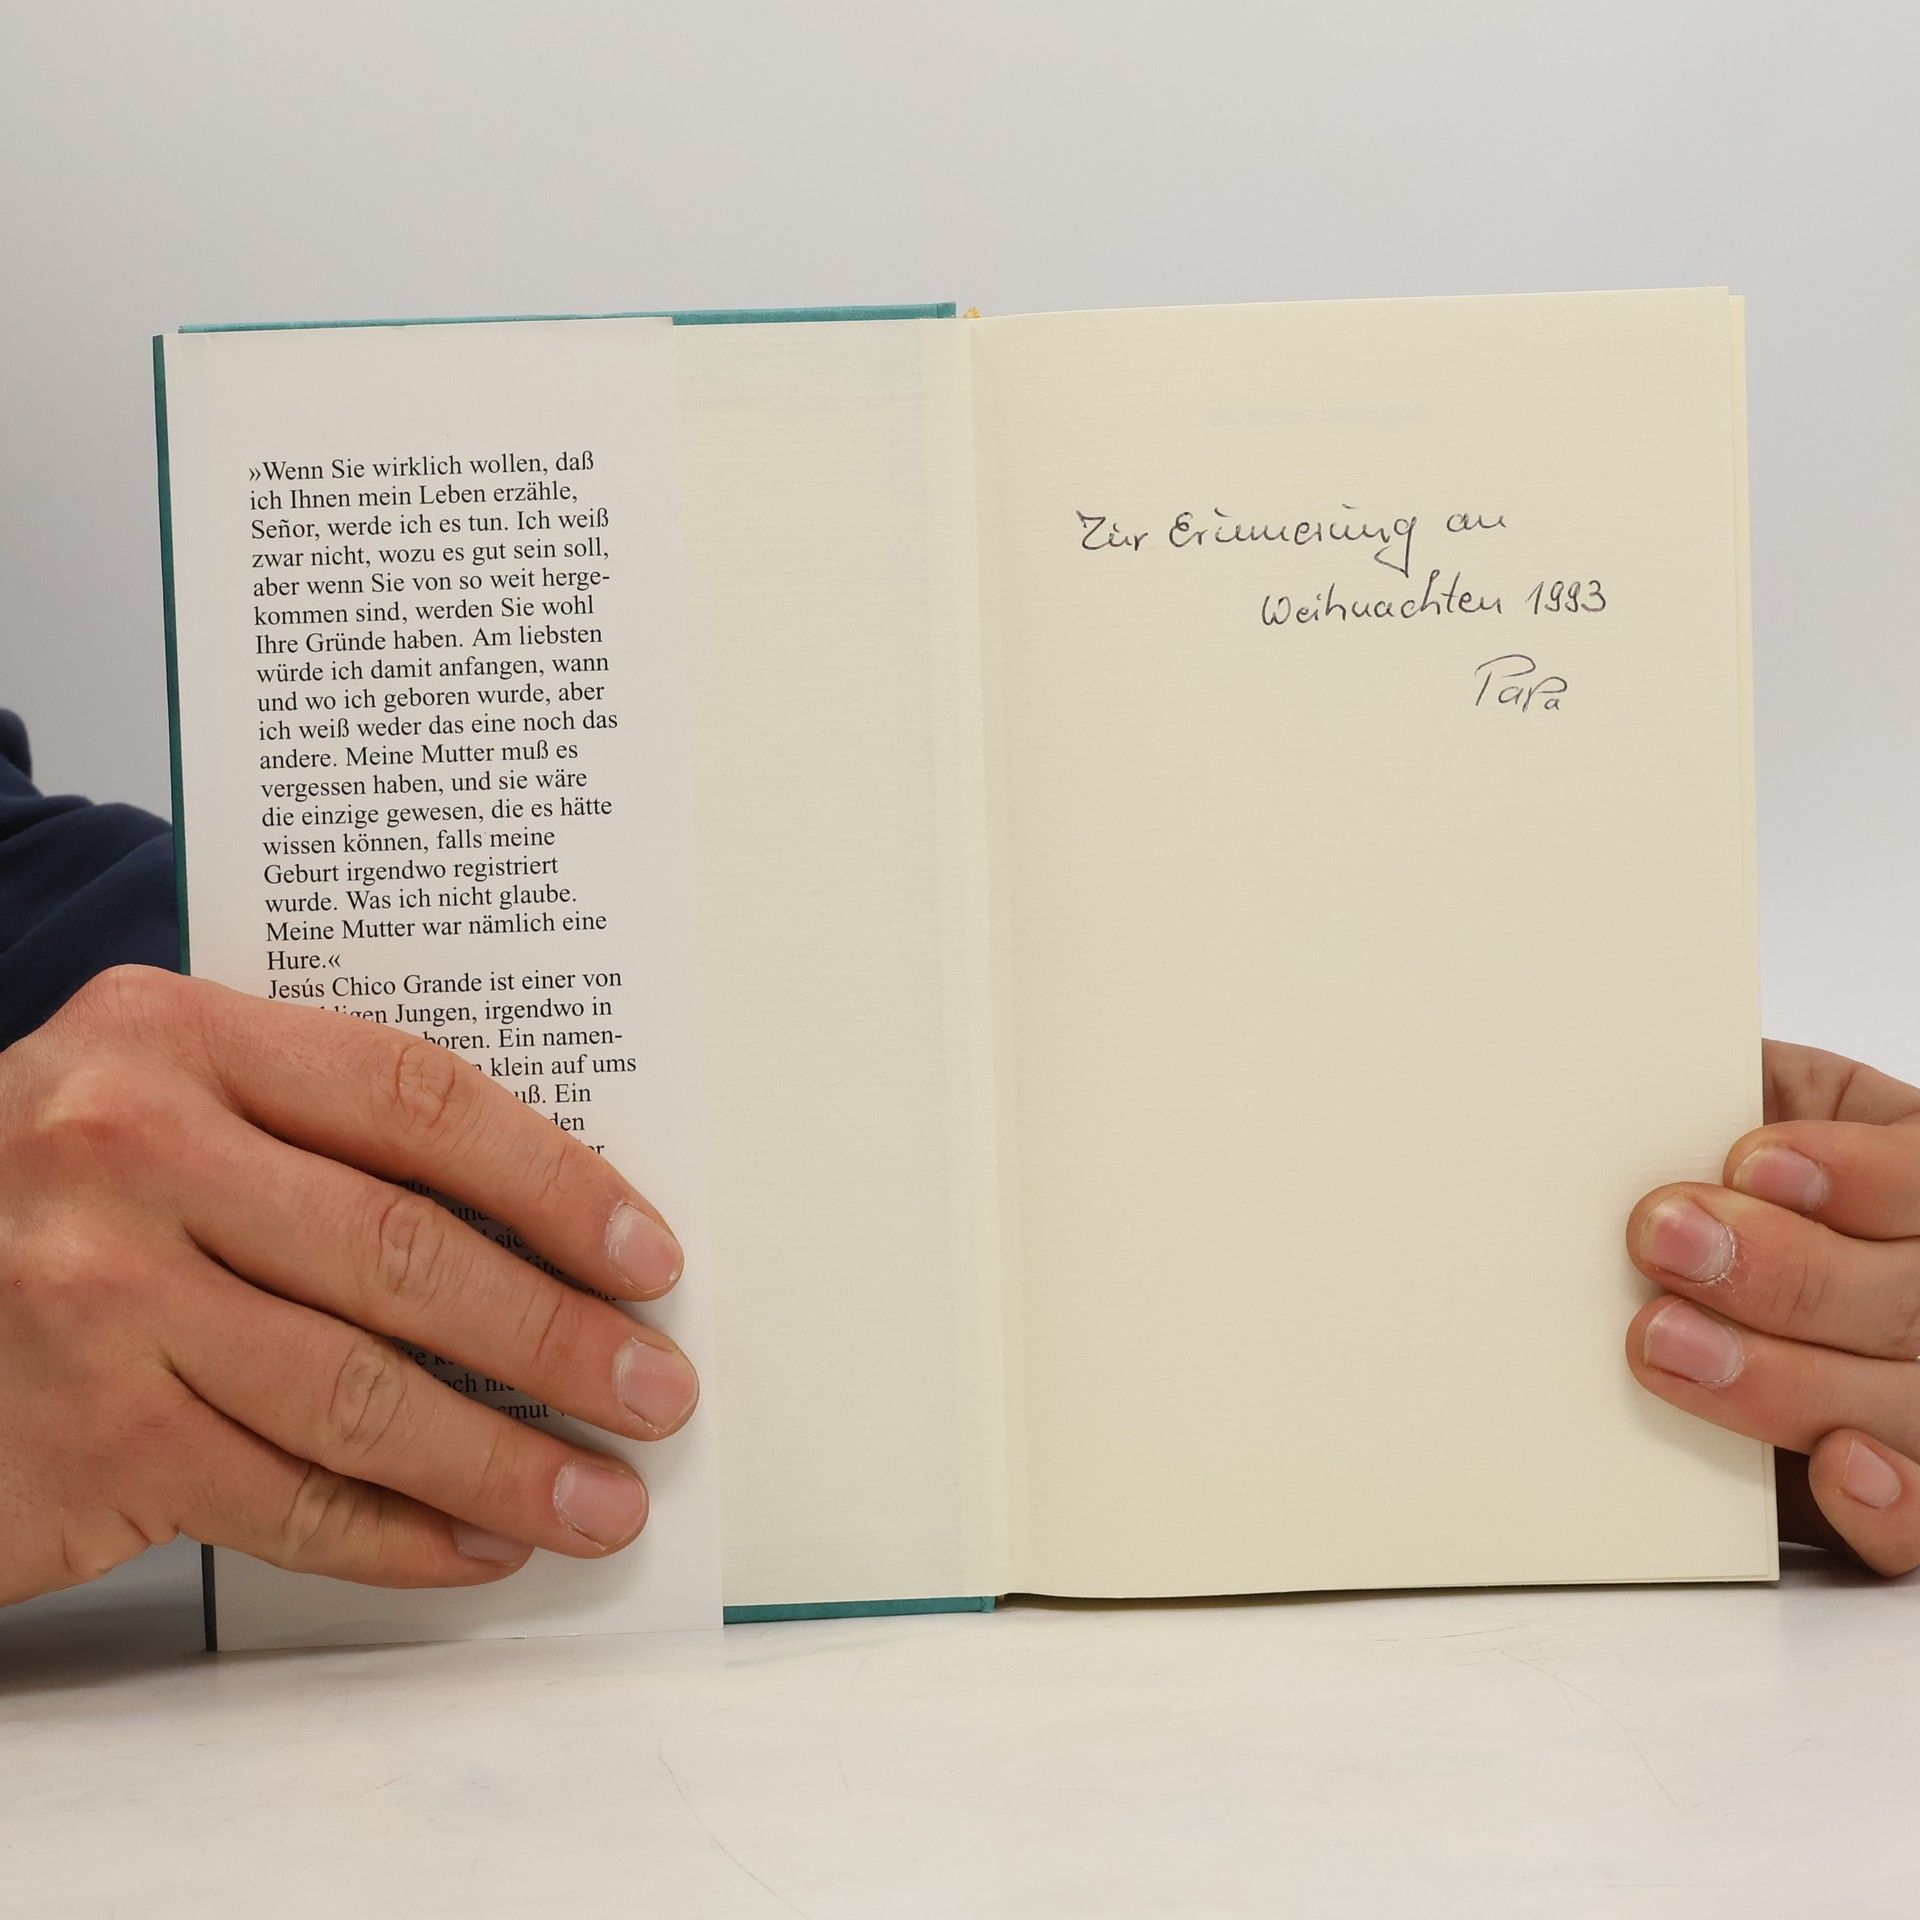 »Wenn Sie wirklich wollen, daß
ich Ihnen mein Leben erzähle,
Señor, werde ich es tun. Ich weiß
zwar nicht, wozu es gut sein soll,
aber wenn Sie von so weit herge-
kommen sind, werden Sie wohl
Ihre Gründe haben. Am liebsten
würde ich damit anfangen, wann
und wo ich geboren wurde, aber
ich weiß weder das eine noch das
andere. Meine Mutter muß es
vergessen haben, und sie wäre
die einzige gewesen, die es hätte
wissen können, falls meine
Geburt irgendwo registriert
wurde. Was ich nicht glaube.
Meine Mutter war nämlich eine
Hure.«
Jesús Chico Grande ist einer von
Jungen, irgendwo in
Ein namen-
klein auf ums
Ein
Zur Erinnerung an
Weihnachten 1993
Papa